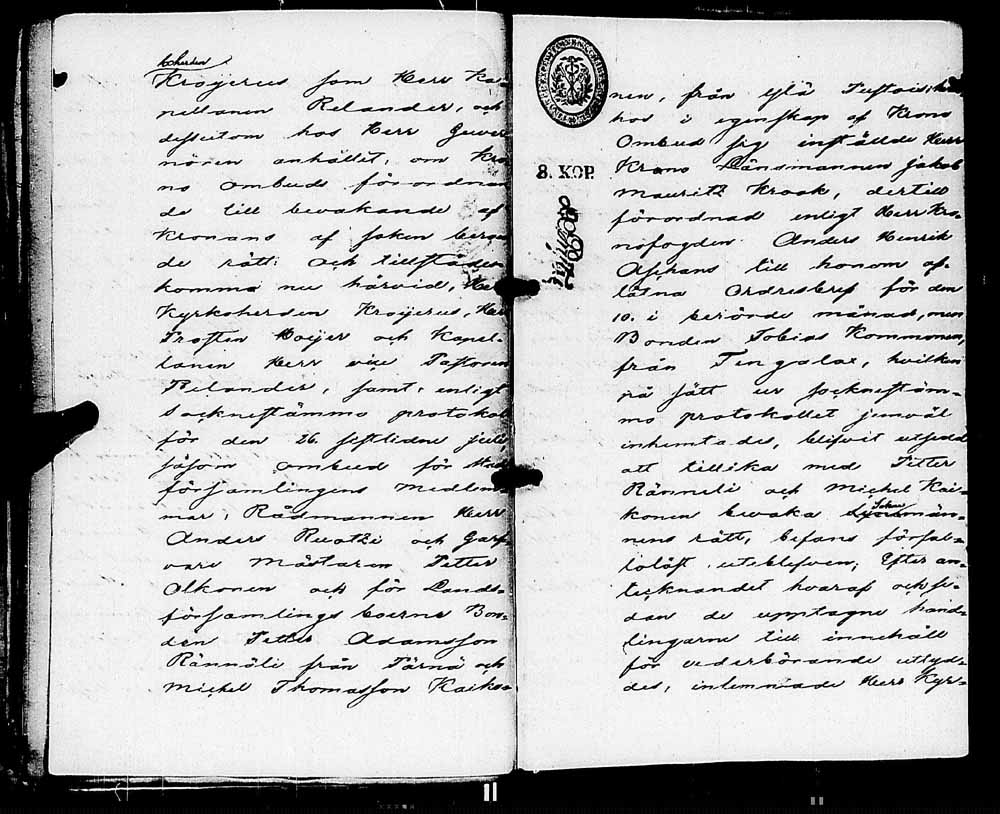 Kyrkoherden
Kroijerus som Herr Ka-
pellanen Relander, och
dessutom hos Herr Guver
nören anhållit, om Kro
no ombuds förordnan
de till bevakande af
Kronans af saken beroen
de rätt: och tillstädes
komma nu härvid, Herr
Kyrkoherden Kroijerus, Herr
Prosten Hoijer och Kapel-
lanen Herr vice Pastoren
Relander, samt enligt
Sockneståmmo protokol
för den 26. sistlidne Julii
såsom ombud för Stads
församlingens medlem-
mar, Rådmannen Herr
Anders Ruotzi och Garf
vare Mästaren Petter
Alkonen och för Lands-
församlings boerne Bon-
den Petter Adamsson
Rännäli från Tärnä och
Michel Thomasson Kaiko-
nen, från Ylä
hos i egenskap af Krono
Ombud sig inställde Herr
Krono Länsmannen Jakob
Mauritz Krook, dertill
förordnad enligt Herr Kro-
nofogden Anders Henrik
Asehans till honom af-
låtna Ordresbref för den
10. i berörde månad, men
Bonden Tobias Kommonen,
från Tengalax, hvilken
på sätt ur sockneståm-
mo protokollet jemväl
inhemtades, blifvit utsedd
att tillika med Petter
Rännäli och Michel Kai-
konen bevaka Sokne männens
nens rätt, befans förfal-
lolöst utebliven; Efter an-
tecknandet hvaraf och se-
dan de upptagne hand-
lingarne till innehåll
för vederbörande uttyd-
des, inlemnade Herr Kyr-
8. KOP.